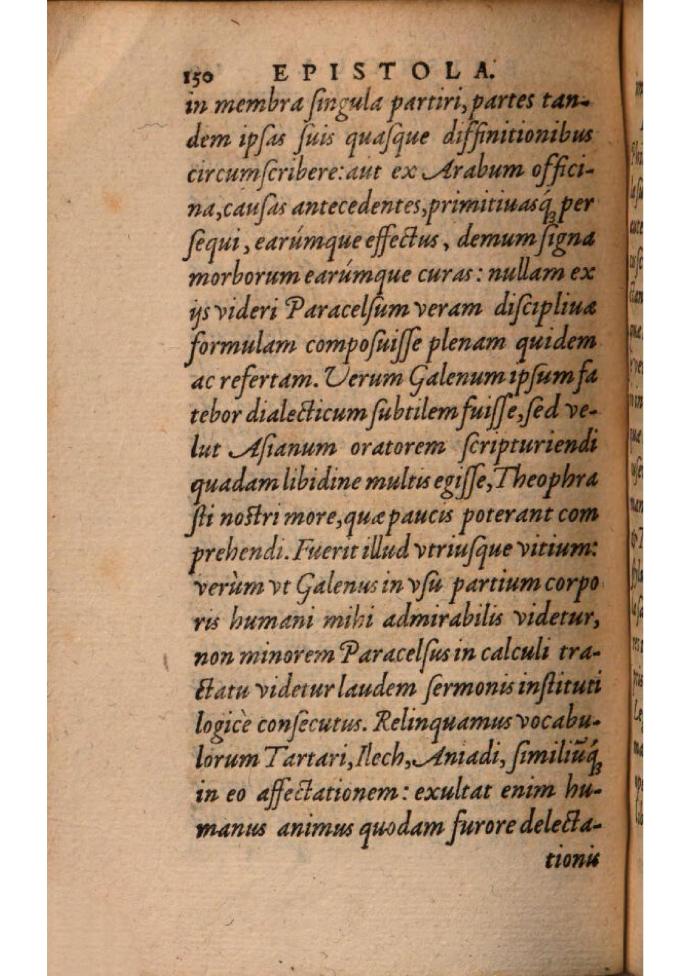 150 EPISTOLA.
in membra ſingula partiri, partes tan-
dem ipſas ſuis quaſque diffinitionibus
circumſcribere: aut ex Arabum offici-
na, cauſas antecedentes, primitiuasq́ꝫ per
ſequi, earúmque effectus, demum ſigna
morborum earúmque curas: nullam ex
ijs videri Paracelſum veram diſcipliuæ
formulam compoſuiſſe plenam quidem
ac refertam. Verum Galenum ipſum fa
tebor dialecticum ſubtilem fuiſſe, ſed ve-
lut Aſianum oratorem ſcripturiendi
quadam libidine multis egiſſe, Theophra
ſti noſtri more, quæ paucis poterant com
prehendi. Fuerit illud vtriuſque vitium:
verùm vt Galenus in vſu partium corpo
ris humani mihi admirabilis videtur,
non minorem Paracelſus in calculi tra-
ctatu videtur laudem ſermonis inſtituti
logicè conſecutus. Relinquamus vocabu-
lorum Tartari, Ilech, Aniadi, ſimiliũq́ꝫ
in eo affectationem: exultat enim hu-
manus animus quodam furore delecta-
tionis